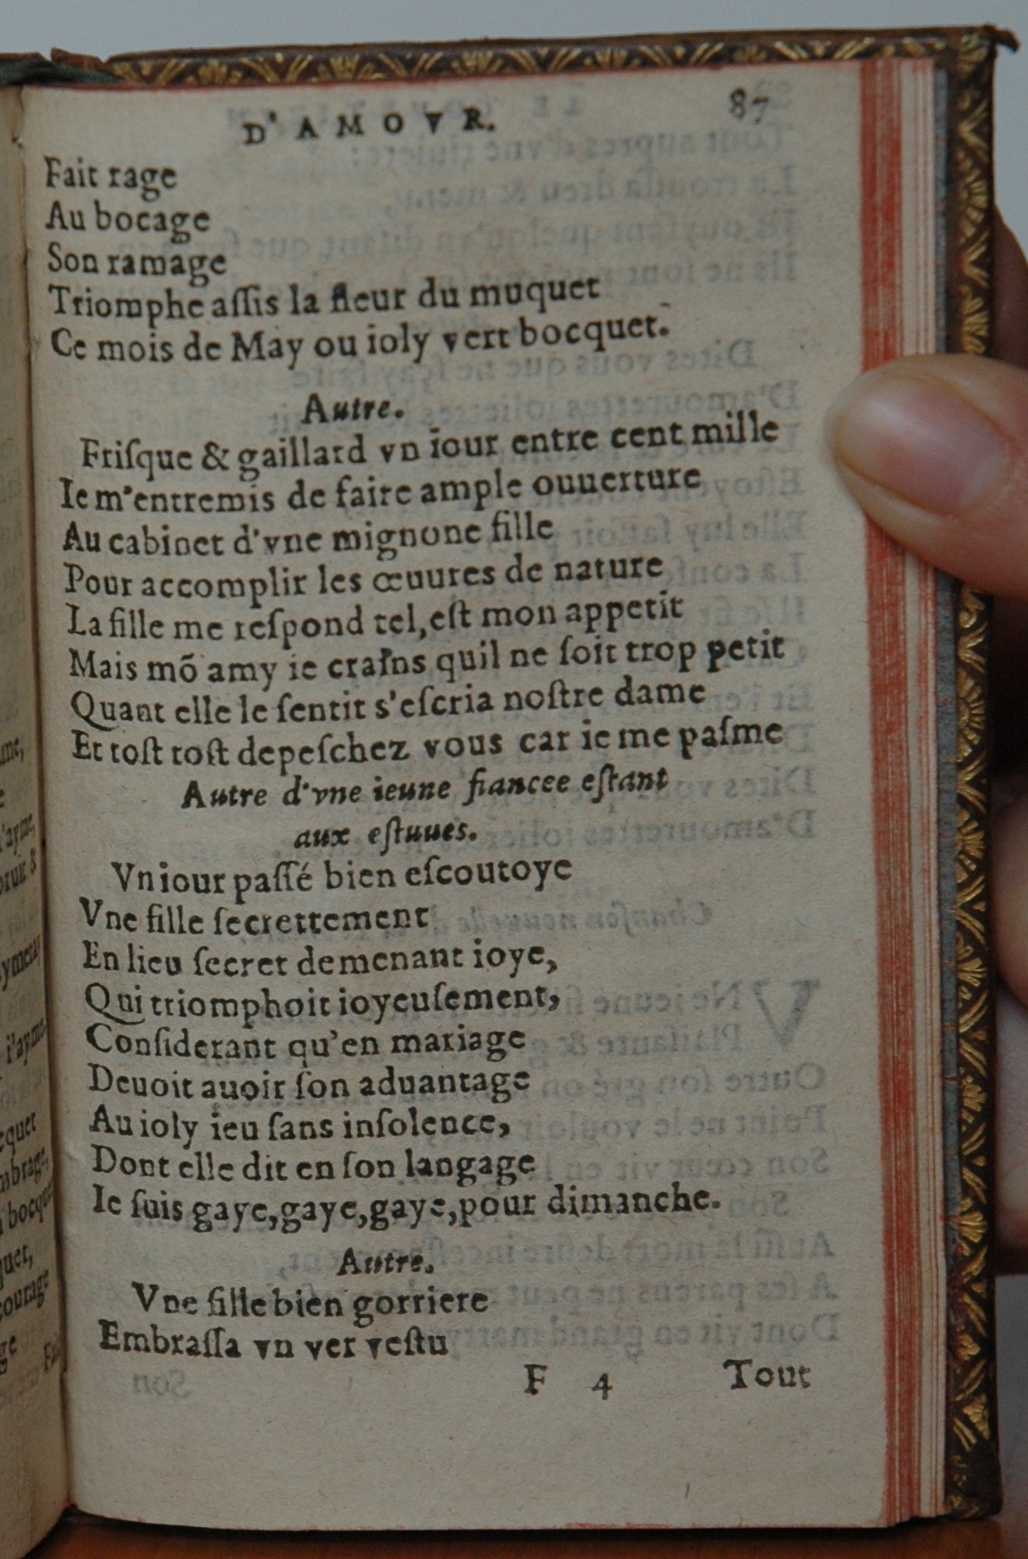 D'AMOVR. 87
Fait rage
Au bocage
Son ramage
Triomphe aſſis la fleur du muquet
Ce mois de May ou ioly vert bocquet.
Autre.
Friſque & gaillard vn iour entre cent mille
Ie m'entremis de faire ample ouuerture
Au cabinet d'vne mignone fille
Pour accomplir les œuures de nature
La fille me reſpond tel, eſt mon appetit
Mais mõ amy ie crains quil ne ſoit trop petit
Quant elle le ſentit s'eſcria noſtre dame
Et toſt toſt depeſchez vous car ie me paſme
Autre d'vne ieune fiancee eſtant
aux eſtuues.
Vn iour paſſé bien eſcoutoye
Vne fille ſecrettement
En lieu ſecret demenant ioye,
Qui triomphoit ioyeuſement,
Conſiderant qu'en mariage
Deuoit auoir ſon aduantage
Au ioly ieu ſans inſolence,
Dont elle dit en ſon langage
Ie ſuis gaye, gaye, gaye, pour dimanche.
Autre.
Vne fille bien gorriere
Embraſſa vn ver veſtu
F 4 Tout